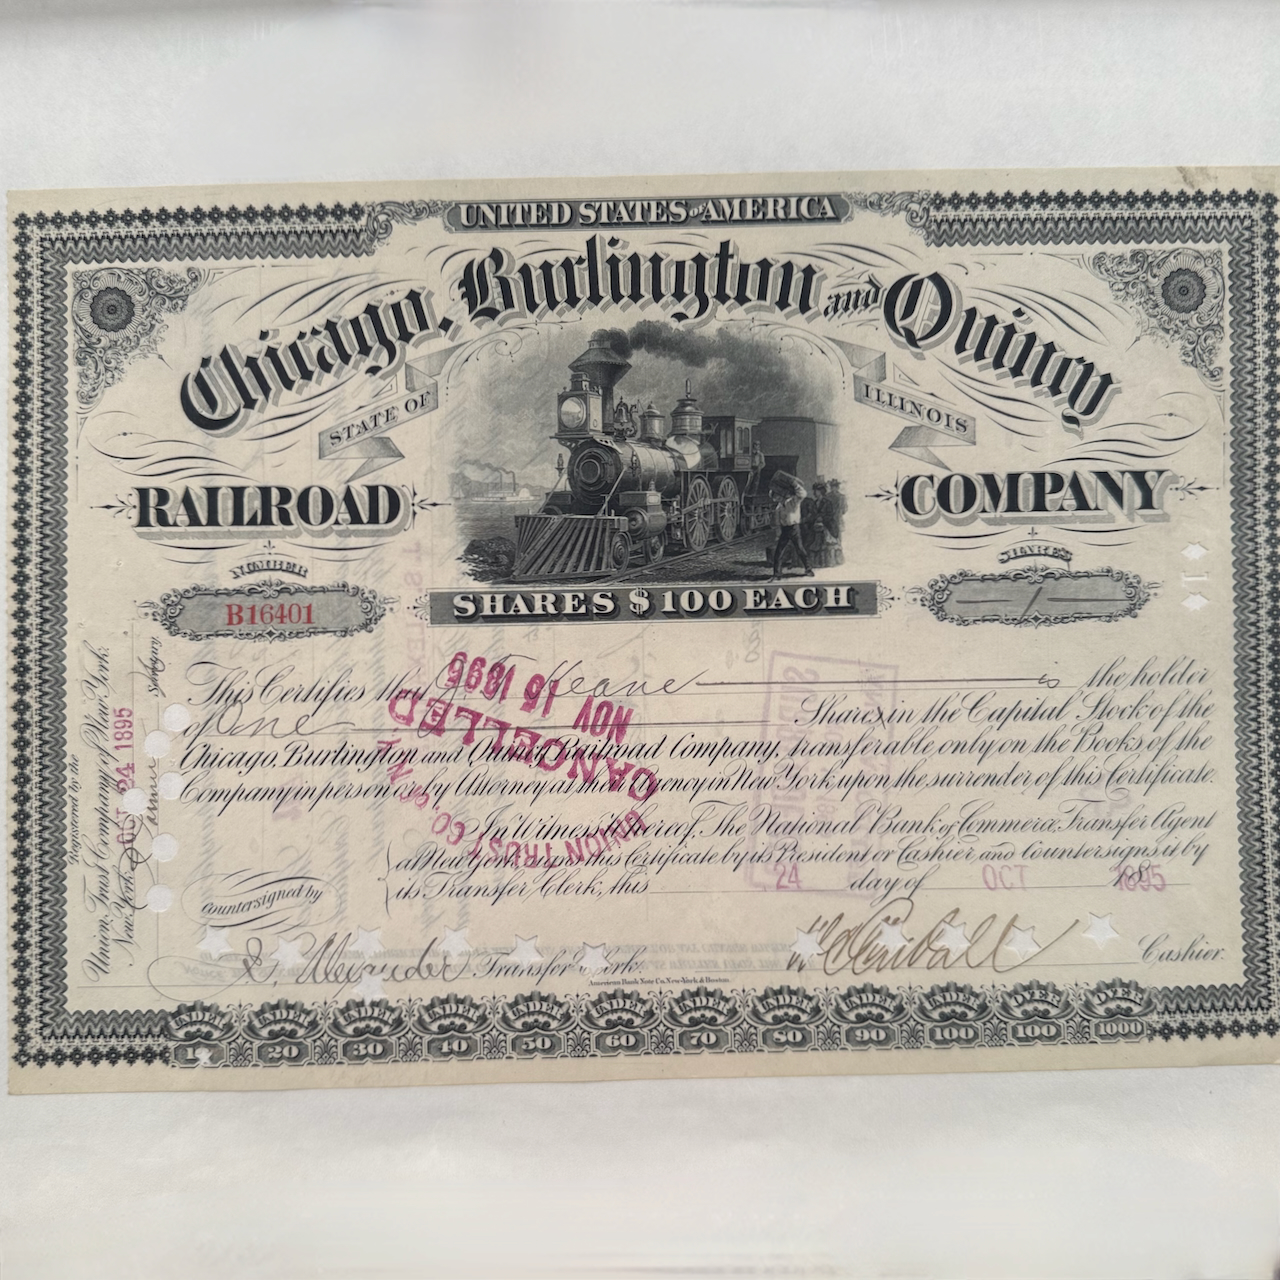 UNITED STATES OF AMERICA
Chicago, Burlington and Quincy
STATE OF ILLINOIS
RAILROAD COMPANY
NUMBER
SHARES
B16401
1
SHARES $100 EACH
This Certifies that Keane is the holder
of One Shares in the Capital Stock of the
Chicago, Burlington and Quincy Railroad Company, transferable only on the Books of the
Company in person or by Attorney at their Agency in New York upon the surrender of this Certificate.
In Witness Whereof, The National Bank of Commerce, Transfer Agent
at New York signs this Certificate by its President or Cashier and Countersigns it by
its Transfer Clerk, this 24 day of OCT 1895
Countersigned by
S. Alexander Transfer Clerk.
W. C. Duvall Cashier.
American Bank Note Co. New-York & Boston.
Registered by the
Union Trust Company of New York.
New York OCT 24 1895
Secretary
UNION TRUST CO. OF N.Y.
CANCELLED
NOV 15 1896
UNDER 10
UNDER 20
UNDER 30
UNDER 40
UNDER 50
UNDER 60
UNDER 70
UNDER 80
UNDER 90
UNDER 100
OVER 100
OVER 1000